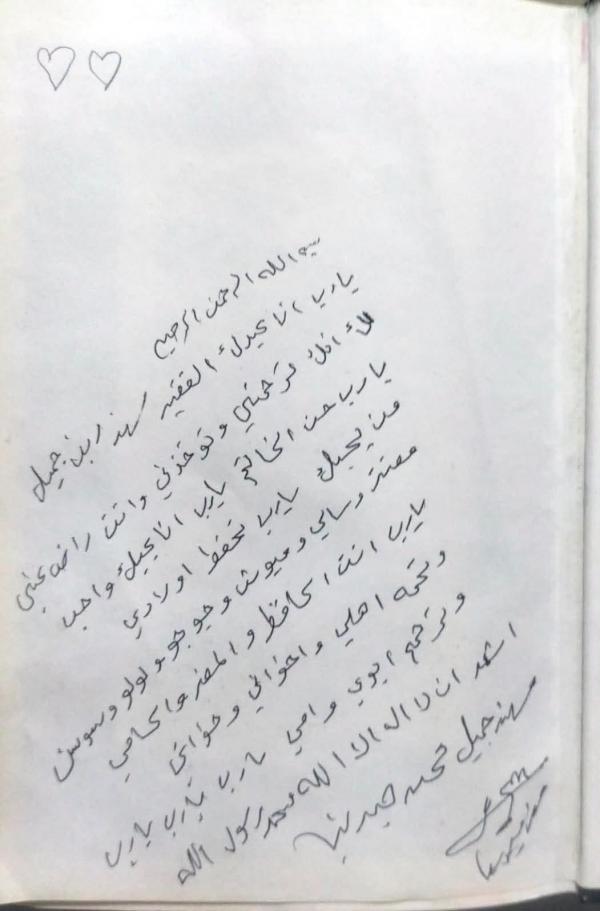 بسم الله الرحمن الرحيم
يارب انا عبدك الفقير مهند ابن جميل
لك ترحمني وتوخذني وانت راضي عني
يارب حسن الخاتم يارب انا بحبك واحب
من يحبك يارب تحفظ اولادي
وسالي وميوش وجوجو ولولو وسوسن
يارب انت الحافظ و والحامي
وتحمي اهلي واخواني وخواتي
وترحم ابوي وامي يارب يارب يارب
اشهد ان لا اله الا الله محمد رسول الله
مهند جميل محمد